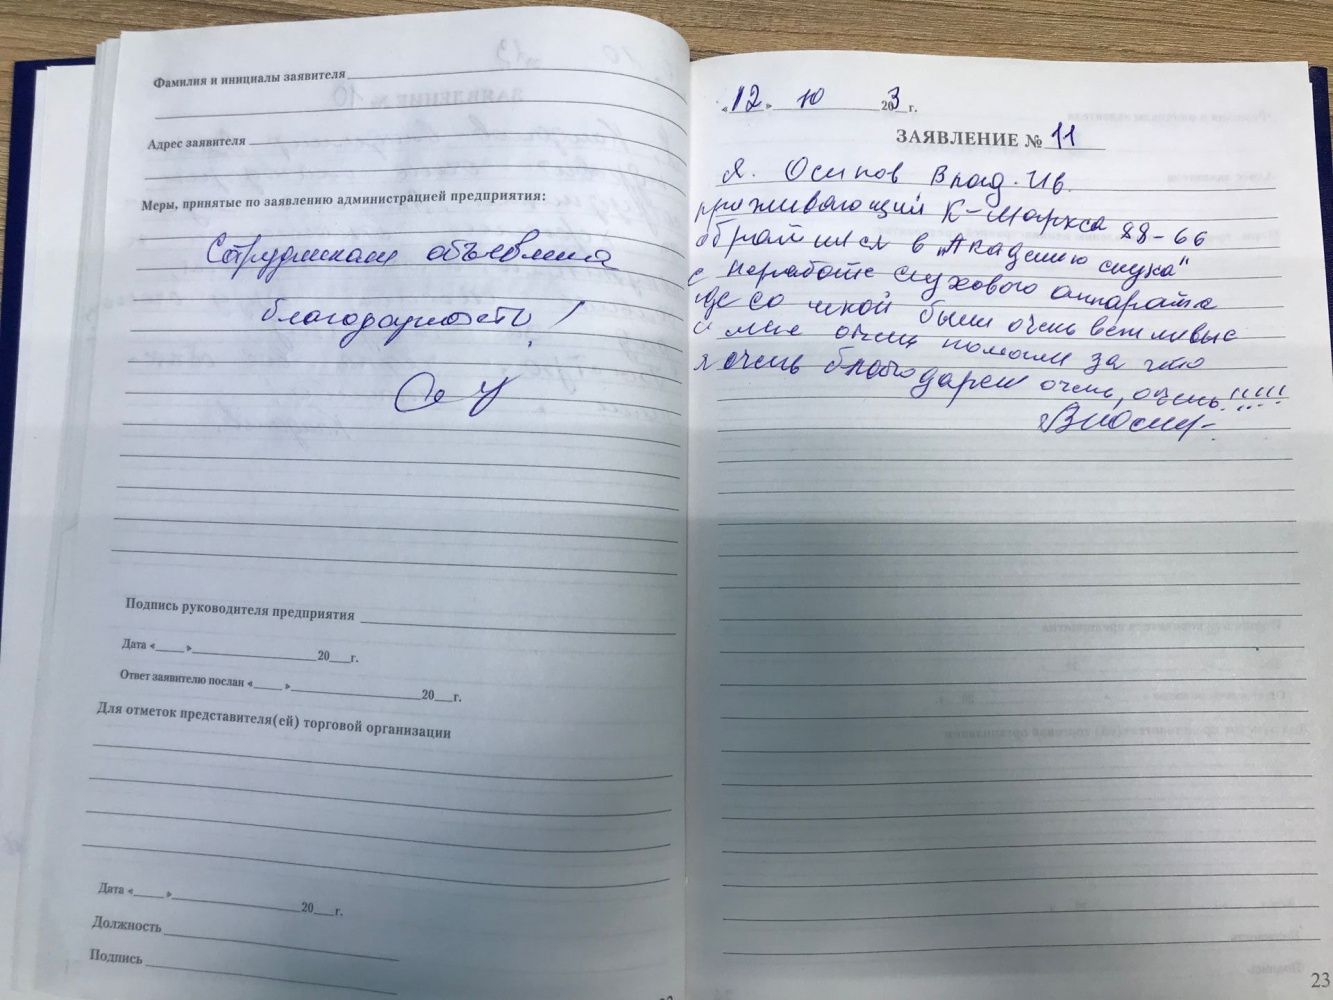 Фамилия и инициалы заявителя
Адрес заявителя
Меры, принятые по заявлению администрацией предприятия:
Сотрудникам объявлена
благодарность!
Подпись руководителя предприятия
Дата «____»____20___г.
Ответ заявителю послан «____»____20___г.
Для отметок представителя(ей) торговой организации
Дата «____»____20___г.
Должность
Подпись
«12» 10 203 г.
ЗАЯВЛЕНИЕ № 11
Я. Осипов Влад. Ив.
проживающий К-Маркса 28-66
обратился в "Академию слуха"
с неработе слухового аппарата
где со мной были очень вежливые
и мне очень помогли за что
я очень благодарен очень, очень!!!!!
23